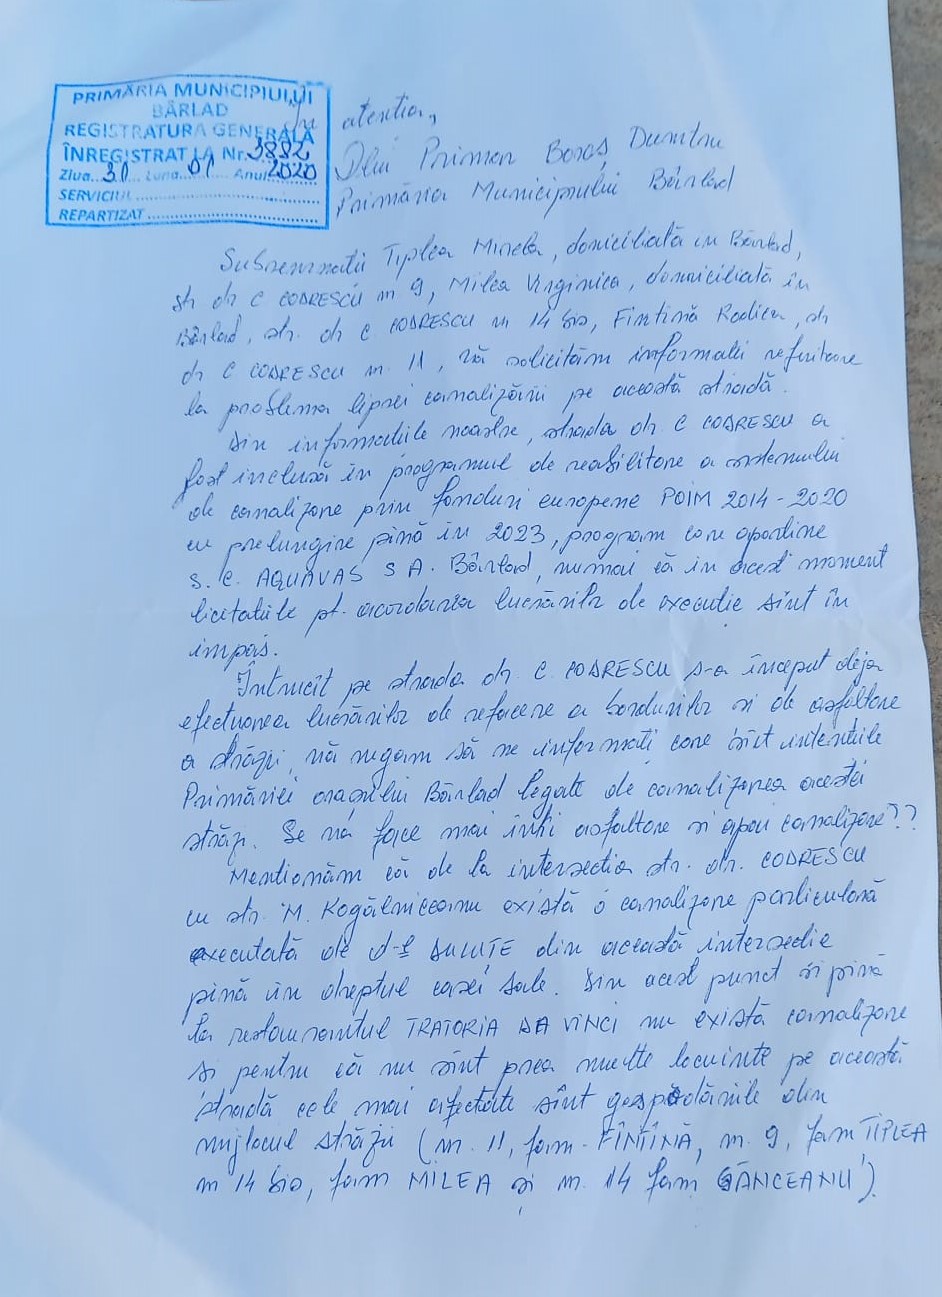 PRIMĂRIA MUNICIPIULUI
BÂRLAD
REGISTRATURA GENERALĂ
ÎNREGISTRAT LA Nr. 3892
Ziua..31... Luna..01... Anul 2020
SERVICIUL
REPARTIZAT
În atenția,
Dlui Primar Boroș Dumitru
Primăria Municipiului Bârlad
Subsemnatii Tiplea Mirela, domiciliată in Bârlad,
str dr C CODRESCU nr 9, Milea Virginica, domiciliată în
Bârlad, str. dr C. CODRESCU nr 14 bis, Fintină Rodica, str
dr C CODRESCU nr. 11, vă solicităm informatii referitoare
la problema lipsei canalizării pe această stradă.
Din informatiile noastre, strada dr C CODRESCU a
fost inclusă în programul de reabilitare a sistemului
de canalizare prin fonduri europene POIM 2014-2020
cu prelungire pină în 2023, program care apartine
S.C. AQUAVAS S A. Bârlad, numai că in acest moment
licitatiile pt. acordarea lucrărilor de executie sînt în
impas.
Întrucît pe strada dr. C. CODRESCU s-a început deja
efectuarea lucrărilor de refacere a bordurilor si de asfaltare
a străzii, vă rugam să ne informati care sînt intentiile
Primăriei orașului Bârlad legate de canalizarea acestei
străzi. Se va face mai intîi asfaltare si apoi canalizare??
Mentionăm că de la intersectia str. dr. CODRESCU
cu str. M. Kogălniceanu există o canalizare particulară
executată de d-l SULUTE din această intersectie
pină în dreptul casei sale. Din acest punct si pină
la restaurantul TRATORIA DA VINCI nu există canalizare
si pentru că nu sînt prea multe locuinte pe această
stradă cele mai afectate sînt gospodăriile din
mijlocul străzii (nr. 11, fam. FÎNTÎNĂ, nr. 9, fam TIPLEA
nr 14 bis, fam MILEA și nr. 14 fam GĂNCEANU).